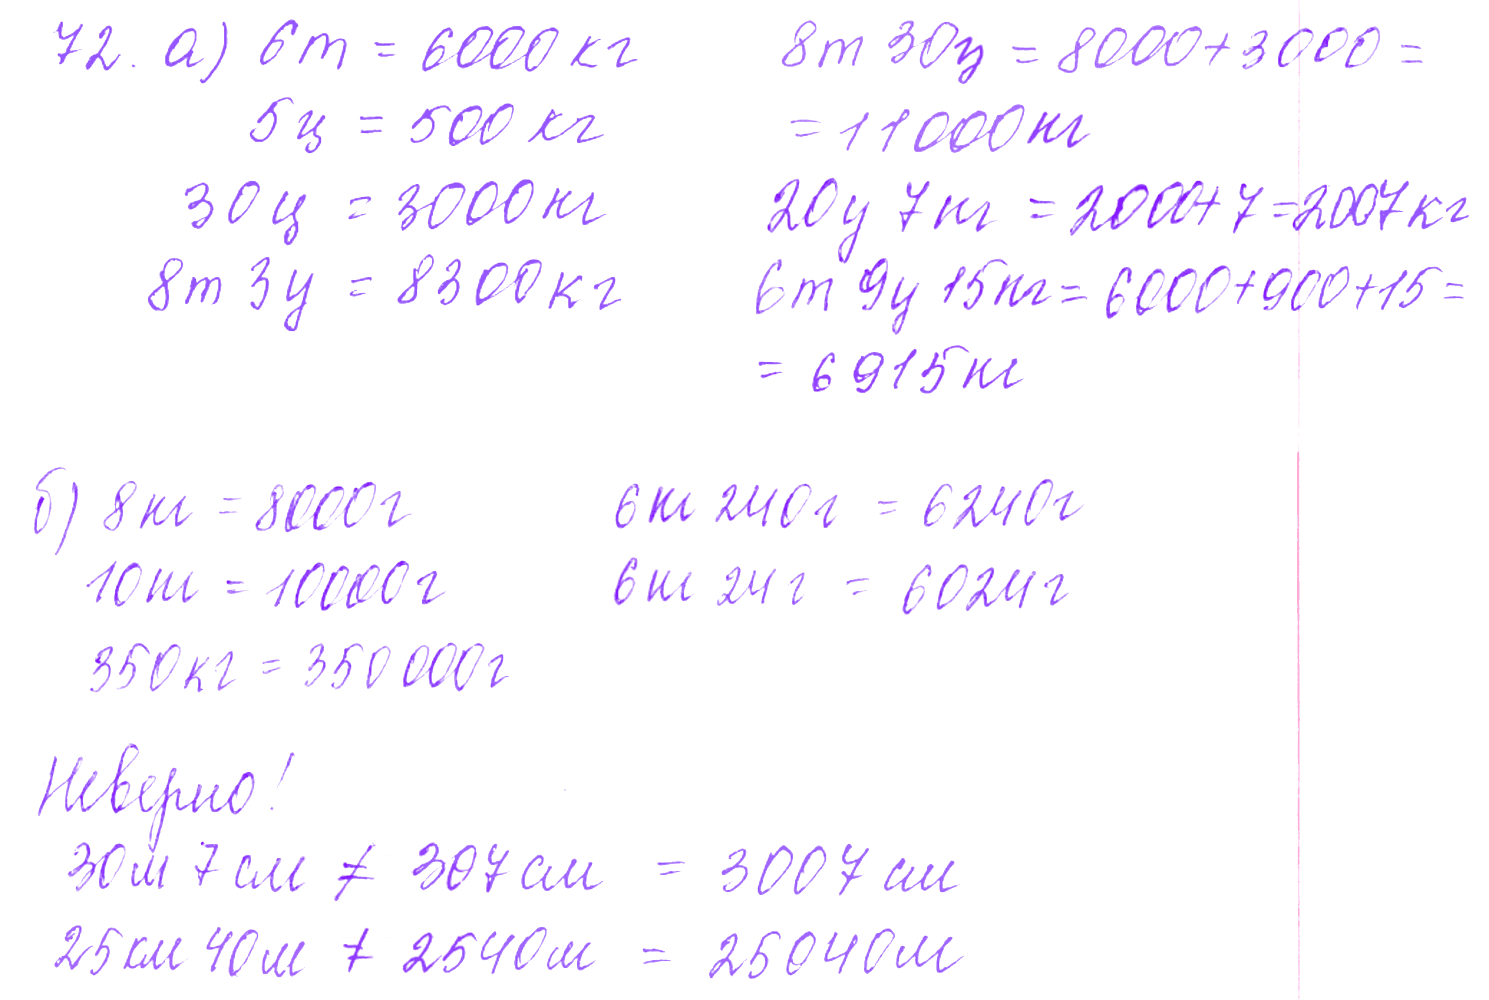 72. а) 6т = 6000кг
5ц = 500кг
30ц = 3000кг
8т 3ц = 8300кг
8т 30ц = 8000+3000=
=11000кг
20ц 7кг = 2000+7=2007кг
6т 9ц 15кг= 6000+900+15=
= 6915кг
б) 8кг = 8000г
10кг = 10000г
350кг = 350000г
6кг 240г = 6240г
6кг 24г = 6024г
Неверно!
30м 7см ≠ 307см = 3007см
25км 40м ≠ 2540м = 25040м